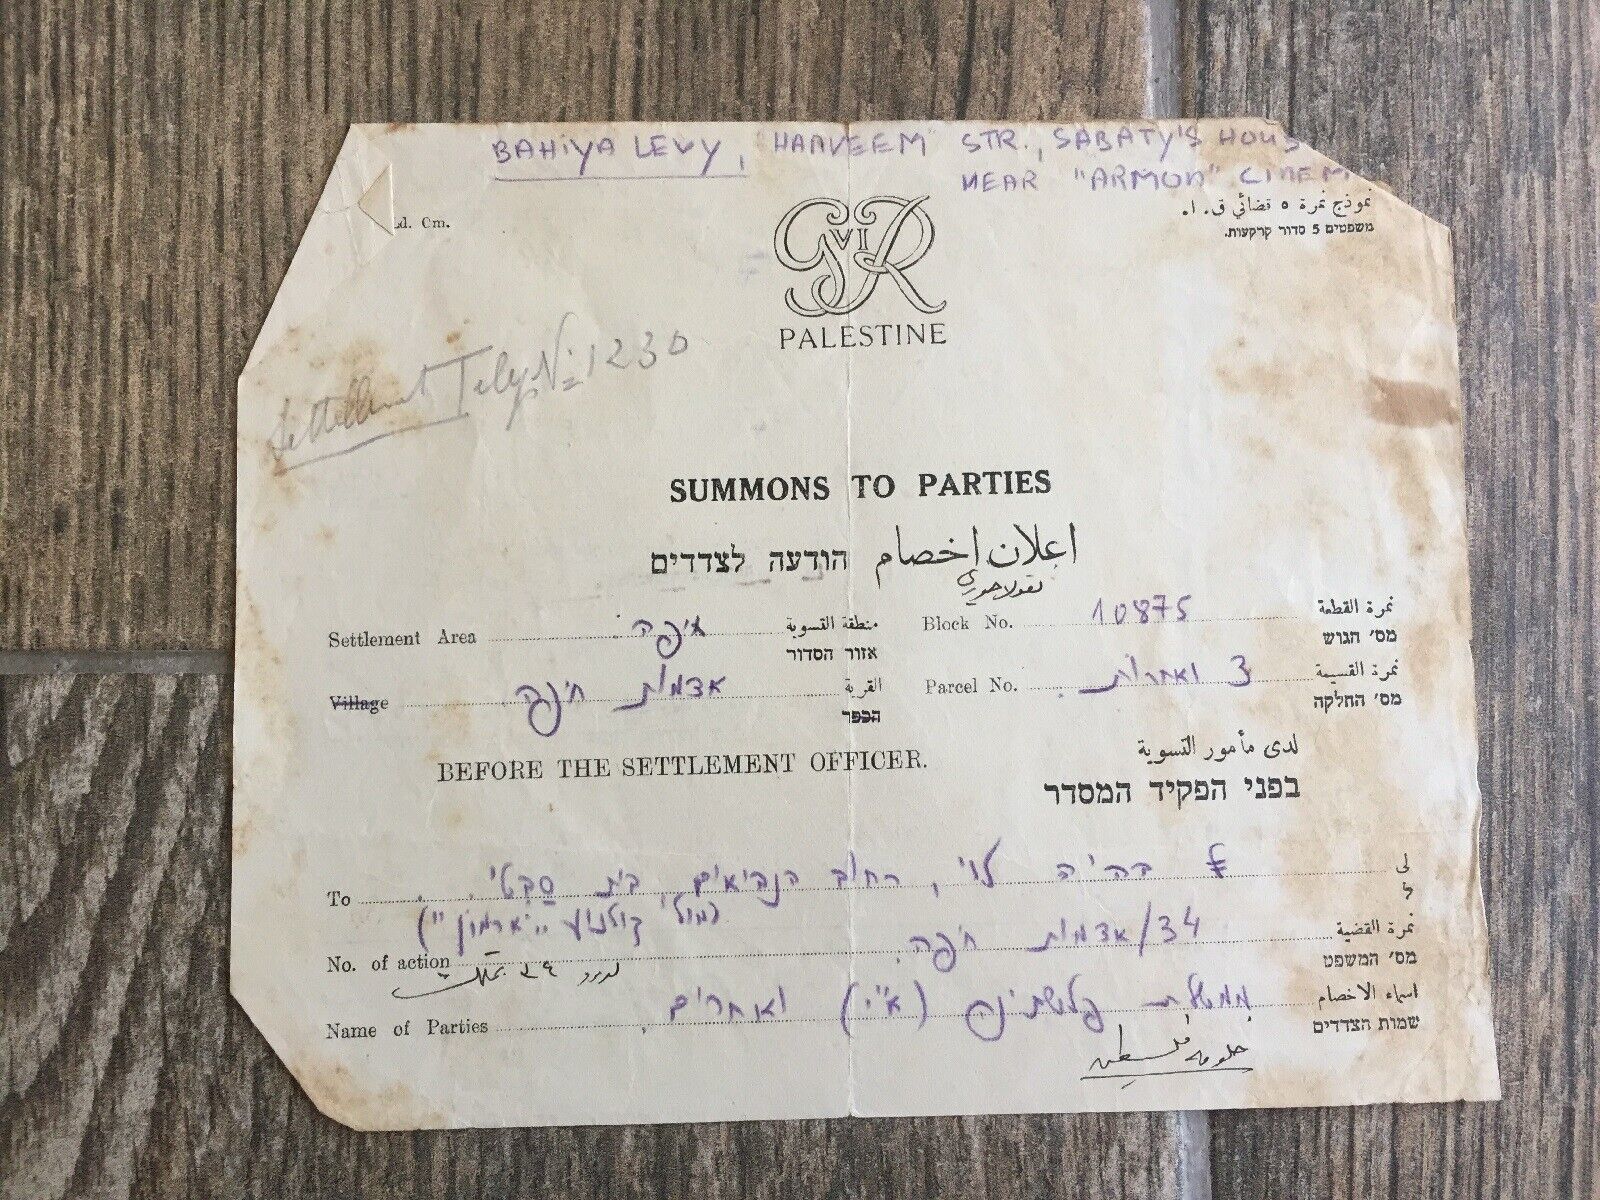 BAHIYA LEVY, "HANVEEM" STR., SABATY'S HOUS
NEAR "ARMON" CINEM
d. Cm.
نموذج نمرة ٥ قضائي ق. ا.
משפטים 5 סדור קרקעות.
GVIR
PALESTINE
Settlement No 1230
SUMMONS TO PARTIES
اعلان اخصام
הודעה לצדדים
Settlement Area חיפה منطقة التسوية
אזור הסדור
Block No. 10875 نمرة القطعة
מס' הגוש
Village אדמות חיפה القرية
הכפר
Parcel No. 3 ואחרות نمرة القسيمة
מס' החלקה
BEFORE THE SETTLEMENT OFFICER.
لدى مأمور التسوية
בפני הפקיד המסדר
To בהיה לוי, רחוב הנביאים בית סבטי. لى
ל
(מול קולנוע "ארמון")
No. of action 34/אדמות חיפה نمرة القضية
מס' המשפט
Name of Parties ממשלת פלשתינה (א"י) ואחרים اسماء الاخصام
שמות הצדדים
حكومة فلسطين